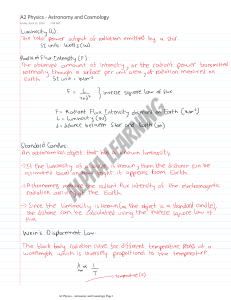 A2 Physics - Astronomy and Cosmology
Luminosity (L)
The total power output of radiation emitted by a star.
SI units: Watts (W)
Radiant Flux Intensity (F)
The observed amount of intensity, or the radiant power transmitted
normally through a surface per unit area, of radiation measured on
Earth.
F = L / 4πd² } inverse square law of flux
F = Radiant Flux Intensity observed on Earth [Wm⁻²]
L = Luminosity [W]
d = distance between Star and Earth (m)
Standard Candles:
An astronomical object that has a known luminosity
If the luminosity of a is known, then the distance can be
estimated based on how bright it appears from Earth.
Astronomers measure the radiant flux intensity of the electromagnetic
radiation at the Earth.
Since the luminosity is known (as the object is a standard candle),
the distance can be calculated using the inverse square law of
flux.
Wien's Displacement Law:
The black body radiation curve for different temperature peaks at a
wavelength which is inversely proportional to the temperature
λ ∝ 1/T
temperature (K)
A2 Physics - Astronomy and Cosmology Page 1